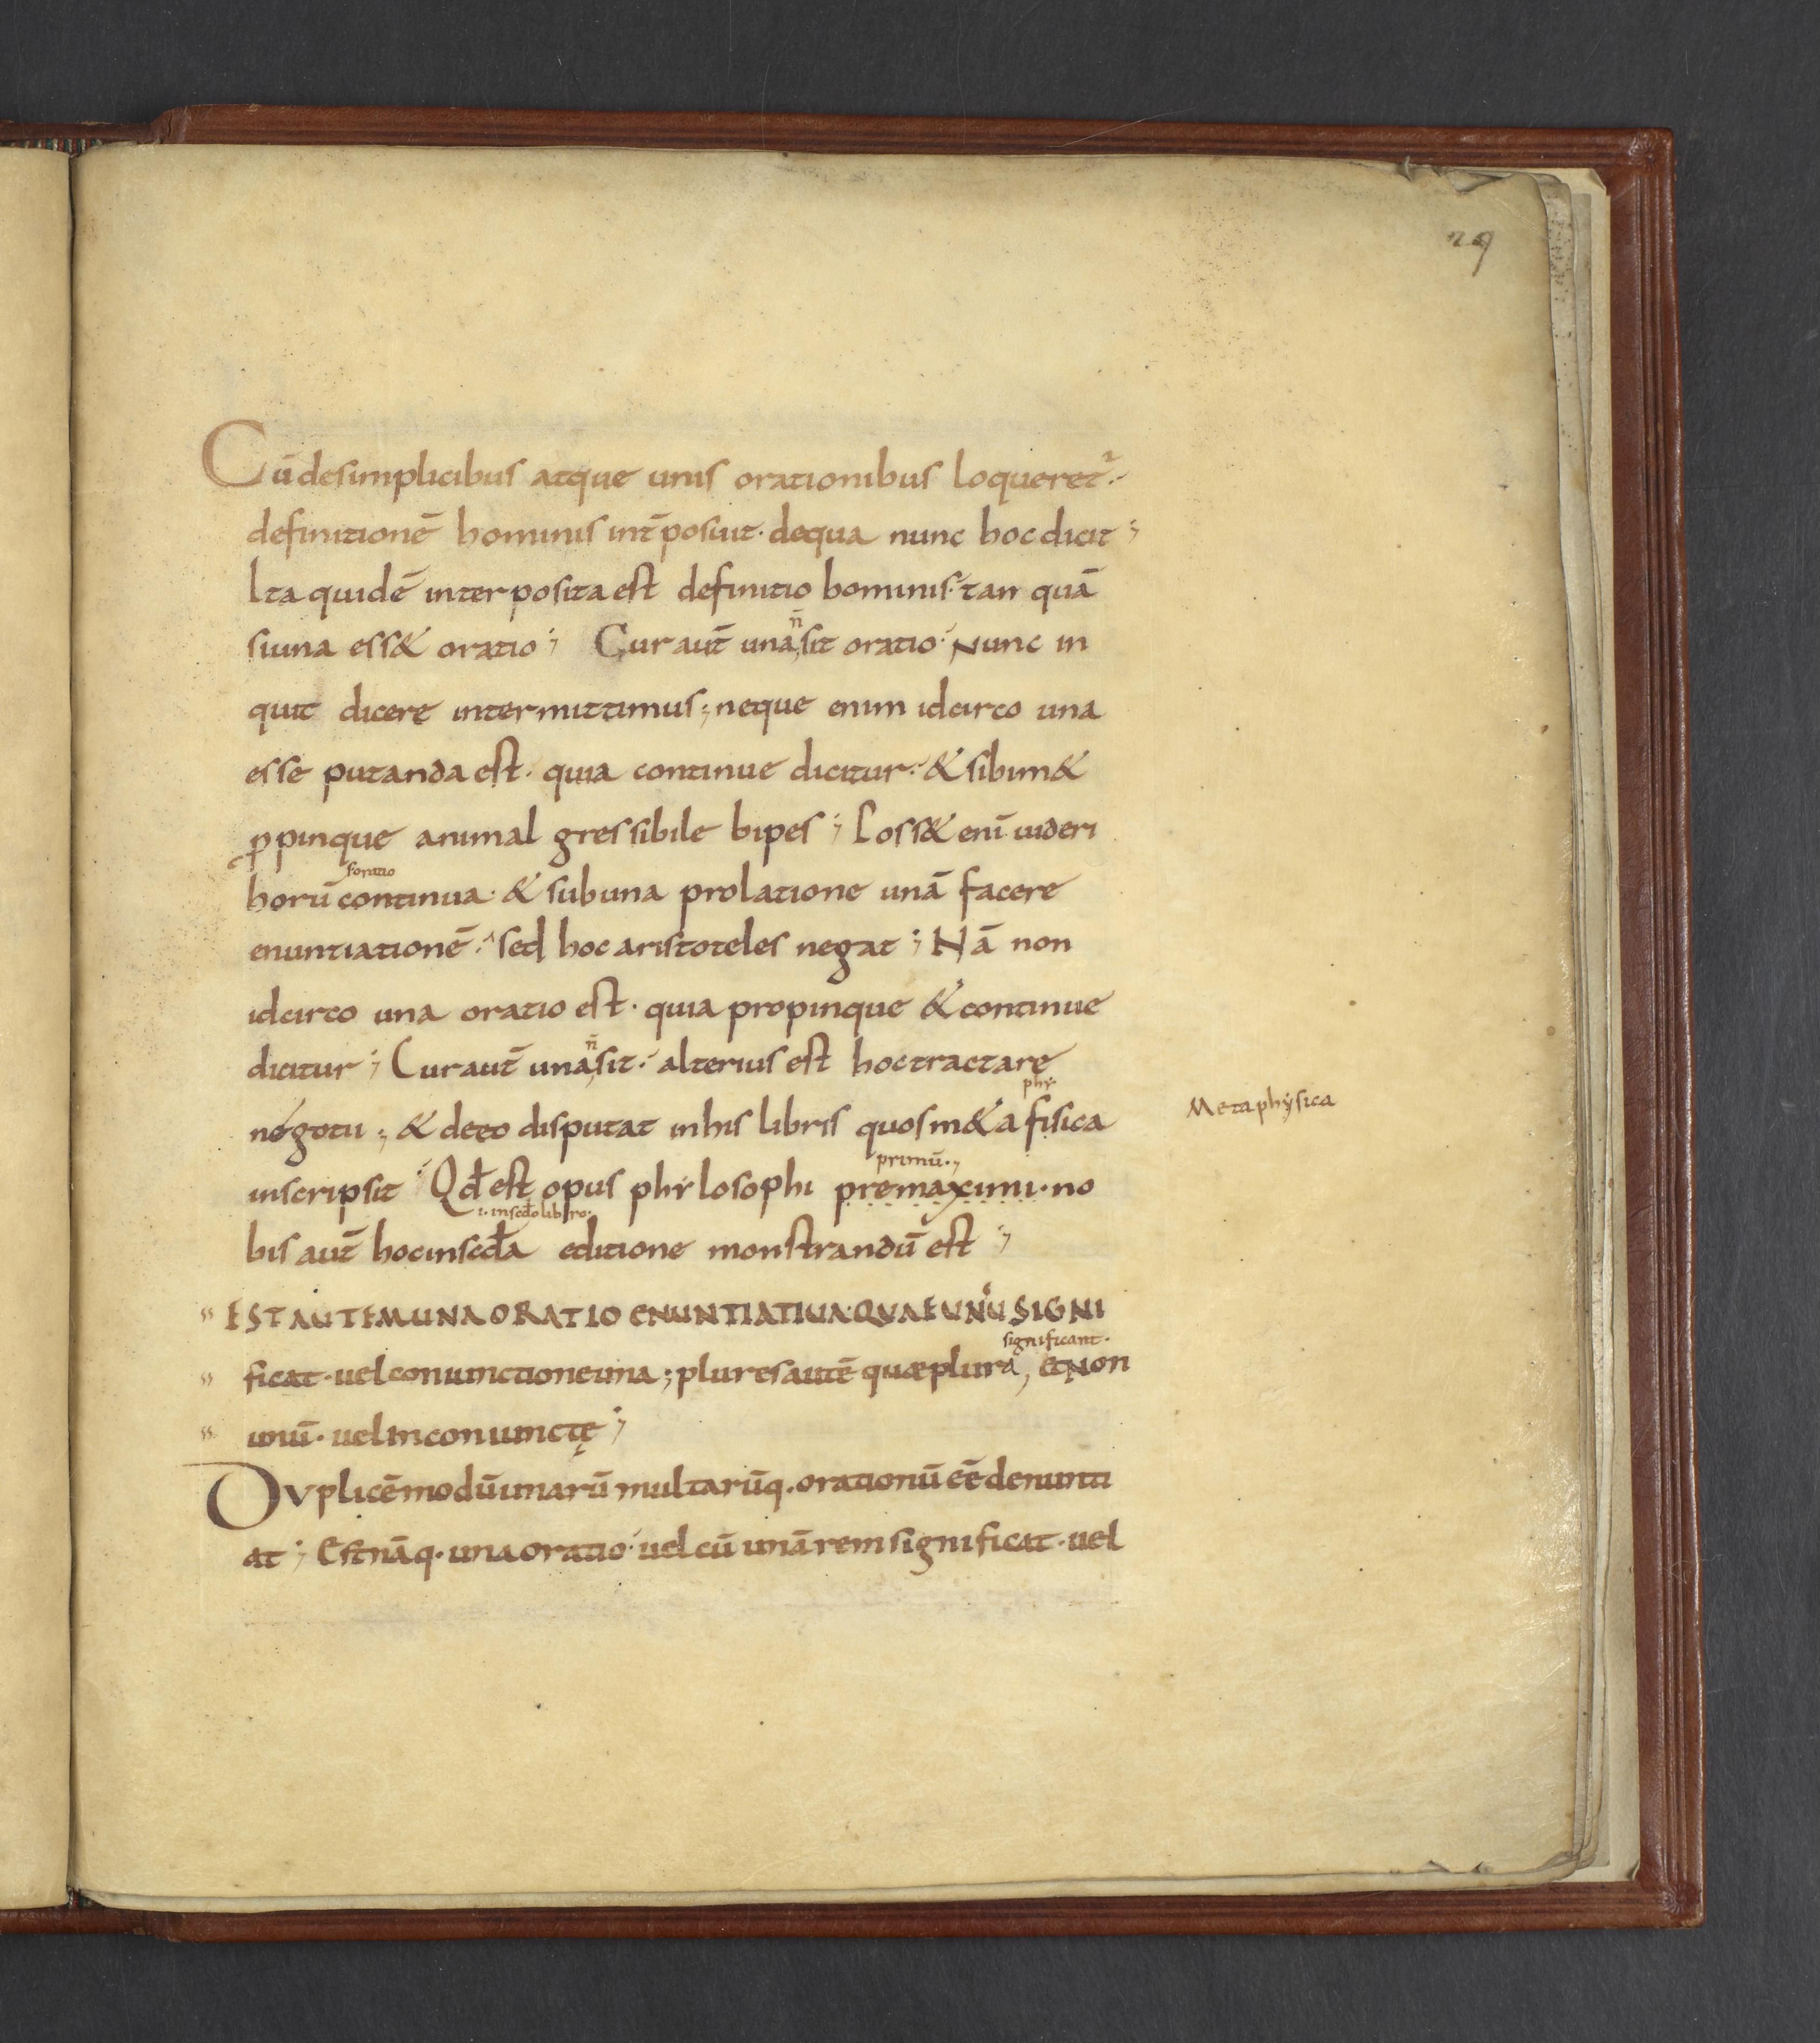 29
Cū desimplicibus atque unis orationibus loqueret᷑·
definitionē hominis int̄posuit· dequa nunc hoc dicit;
Ita quidē interposita est definitio hominis· tan quā
siuna ess& oratio; Cur aut̄ una, sit oratio· Nunc in
n̄
quit dicere intermittimus; neque enim idcirco una
esse putanda est· quia continue dicitur· & sibim&
ꝓpinque animal gressibile bipes; Poss& enī uideri
horū continua· & subuna prolatione unā facere
enuntiationē· sed hoc aristoteles negat; Nā non
idcirco una oratio est· quia propinque & continue
dicitur; Cur aut̄ una, sit· alterius est hoc tractare
n̄
negotii; & deeo disputat inhis libris quos m&a fisica
phy
Metaphẏsica
inscripsit Qđ est opus phẏlosophi premaximi· no
primū·,
bis aut̄ hocinscđa editione monstrandū est;
·i· inscđo libro·
EST AUTEM UNA ORATIO ENUNTIATIUA· QUAE UNŪ SIGNI
ficat· uel coniunctione una; plures autē quae plura, et Non
significant·
unū· uel Inconiunctę;
Duplicē modū unarū multarūq· orationū eē denunti
at; Est nāq· una oratio· uel cū unā rem significat· uel